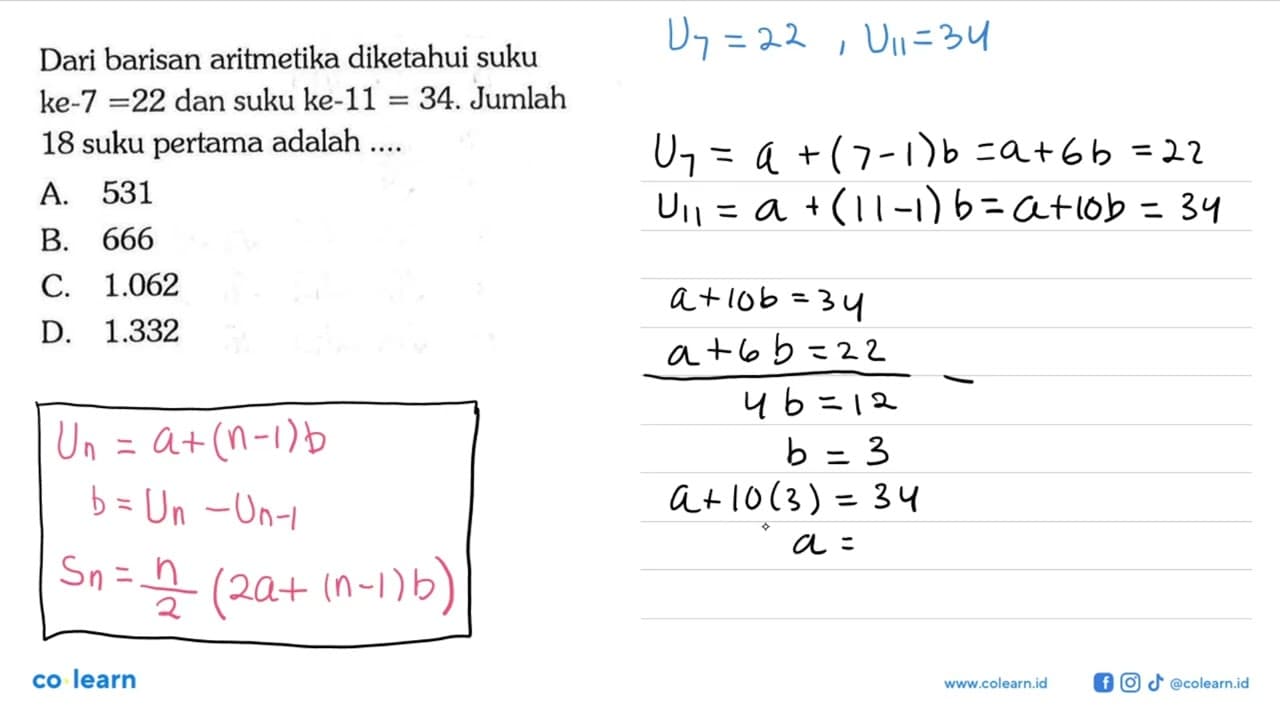 Dari barisan aritmetika diketahui suku
ke-7 =22 dan suku ke-11 = 34. Jumlah
18 suku pertama adalah ....
A. 531
B. 666
C. 1.062
D. 1.332
Un = a+(n-1)b
b = Un - Un-1
Sn = n/2 (2a+(n-1)b)
U7 = 22 , U11 = 34
U7 = a + (7-1)b = a+6b = 22
U11 = a + (11-1)b = a+10b = 34
a+10b = 34
a+6b = 22 -
4b = 12
b = 3
a+10(3) = 34
a =
co learn
www.colearn.id
@colearn.id